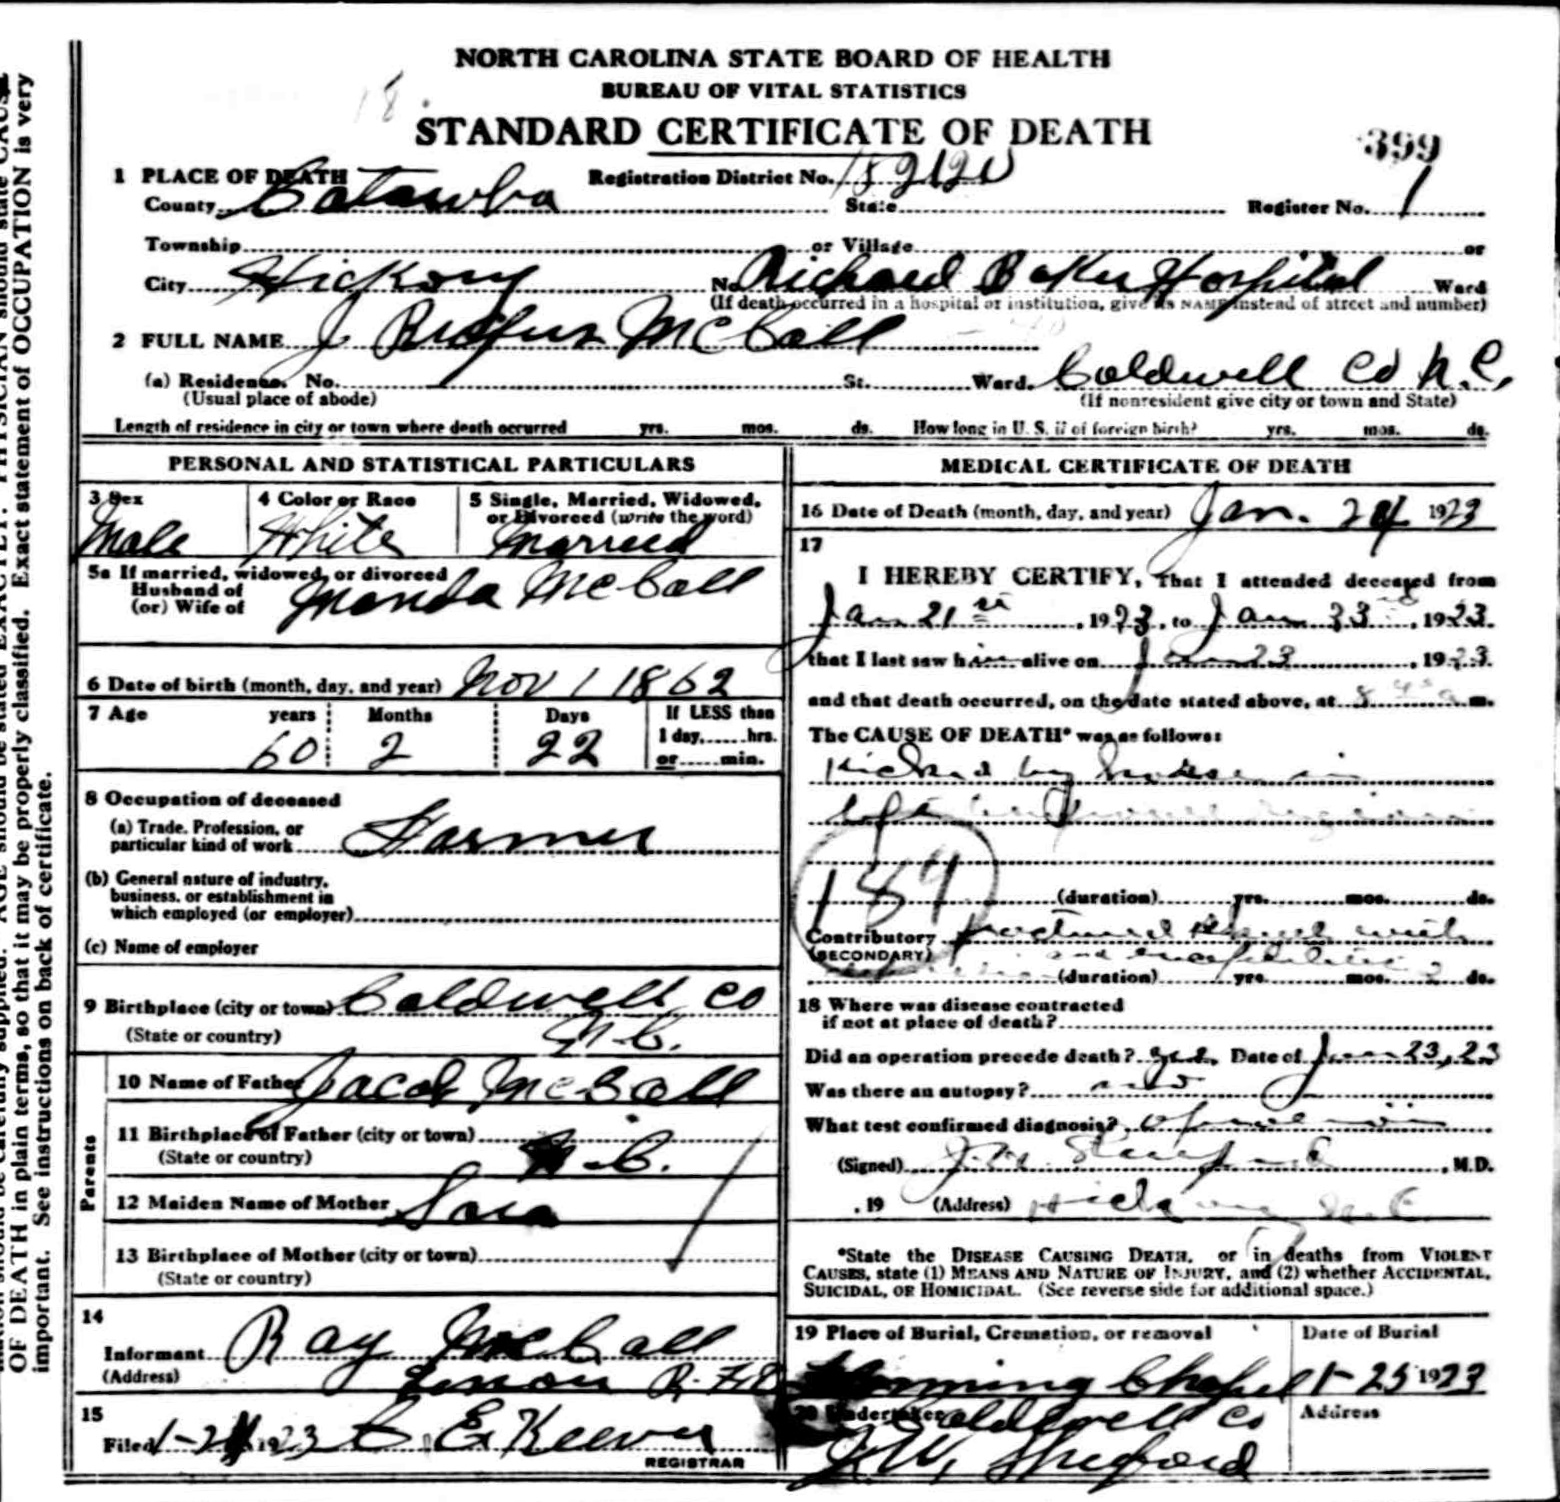 NORTH CAROLINA STATE BOARD OF HEALTH
BUREAU OF VITAL STATISTICS
STANDARD CERTIFICATE OF DEATH
18.
399
1 PLACE OF DEATH Registration District No.
County Catawba State Register No. 1
Township or Village or
City Hickory No. Richard Baker Hospital Ward
(If death occurred in a hospital or institution, give its NAME instead of street and number)
2 FULL NAME J Rufus McCall
(a) Residence. No. St. Ward. Caldwell Co N.C.
(Usual place of abode) (If nonresident give city or town and State)
Length of residence in city or town where death occurred yrs. mos. ds. How long in U. S. if of foreign birth? yrs. mos. ds.
PERSONAL AND STATISTICAL PARTICULARS
3 Sex 4 Color or Race 5 Single, Married, Widowed, or Divorced (write the word)
Male White Married
5a If married, widowed, or divorced
Husband of
(or) Wife of Manda McCall
6 Date of birth (month, day, and year) Nov 1 1862
7 Age years Months Days If LESS than
1 day, hrs.
60 2 22 or min.
8 Occupation of deceased
(a) Trade, Profession, or
particular kind of work Farmer
(b) General nature of industry,
business, or establishment in
which employed (or employer)
(c) Name of employer
9 Birthplace (city or town) Caldwell Co
(State or country) N.C.
Parents
10 Name of Father Jacob McCall
11 Birthplace of Father (city or town) N.C.
(State or country)
12 Maiden Name of Mother Sara
13 Birthplace of Mother (city or town)
(State or country)
14
Informant Ray McCall
(Address) Lenoir R.F.D
15
Filed 1-2 1923 E. Keever
REGISTRAR
MEDICAL CERTIFICATE OF DEATH
16 Date of Death (month, day, and year) Jan. 24 1923
17
I HEREBY CERTIFY, That I attended deceased from
Jan 21st, 1923, to Jan 23, 1923.
that I last saw him alive on Jan 23, 1923.
and that death occurred, on the date stated above, at 8 m.
The CAUSE OF DEATH* was as follows:
Kicked by horse in
left
189
(duration) yrs. mos. ds.
Contributory fractured skull with
(SECONDARY) and
(duration) yrs. mos. 2 ds.
18 Where was disease contracted
if not at place of death?
Did an operation precede death? yes. Date of Jan 23, 23
Was there an autopsy? no
What test confirmed diagnosis? Operation
(Signed) J.H. M.D.
, 19 (Address) Hickory N.C
*State the DISEASE CAUSING DEATH, or in deaths from VIOLENT
CAUSES, state (1) MEANS AND NATURE OF INJURY, and (2) whether ACCIDENTAL,
SUICIDAL, OR HOMICIDAL. (See reverse side for additional space.)
19 Place of Burial, Cremation, or removal Date of Burial
Chapel 1-25 1923
20 Undertaker Caldwell Co Address
OF DEATH in plain terms, so that it may be properly classified. Exact statement of OCCUPATION is very
important. See instructions on back of certificate.